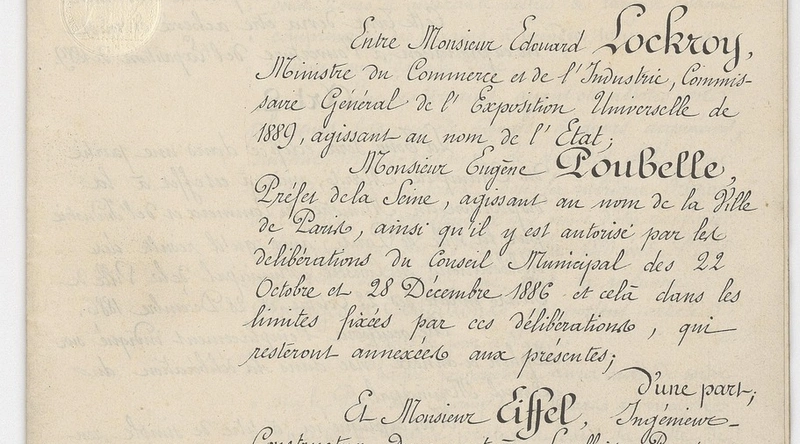 Entre Monsieur Edouard Lockroy,
Ministre du Commerce et de l'Industrie, Commis-
saire Général de l'Exposition Universelle de
1889, agissant au nom de l'Etat;
Monsieur Eugène Poubelle,
Préfet de la Seine, agissant au nom de la Ville
de Paris, ainsi qu'il y est autorisé par les
délibérations du Conseil Municipal des 22
Octobre et 28 Décembre 1886 et celà dans les
limites fixées par ces délibérations, qui
resteront annexées aux présentes;
d'une part;
Et Monsieur Eiffel, Ingénieur-
Constructeur